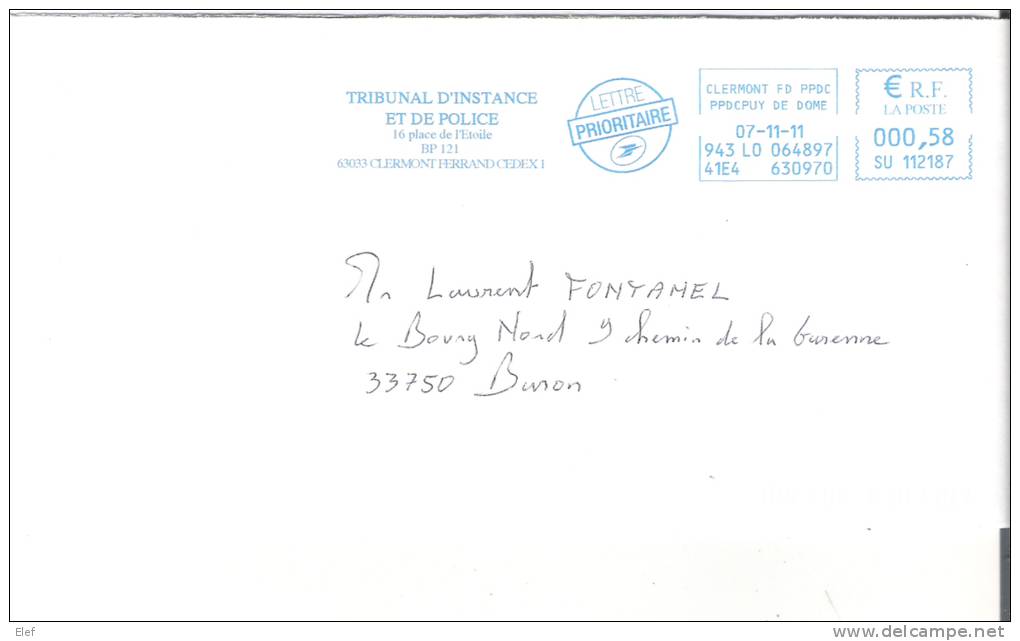 TRIBUNAL D'INSTANCE
ET DE POLICE
16 place de l'Etoile
BP 121
63033 CLERMONT FERRAND CEDEX 1
LETTRE
PRIORITAIRE
CLERMONT FD PPDC
PPDCPUY DE DOME
07-11-11
943 LO 064897
41E4 630970
€ R.F.
LA POSTE
000,58
SU 112187
Mr Laurent FONTAMEL
Le Bourg Nord 9 chemin de la Garenne
33750 Baron
Elef
delcampe.net